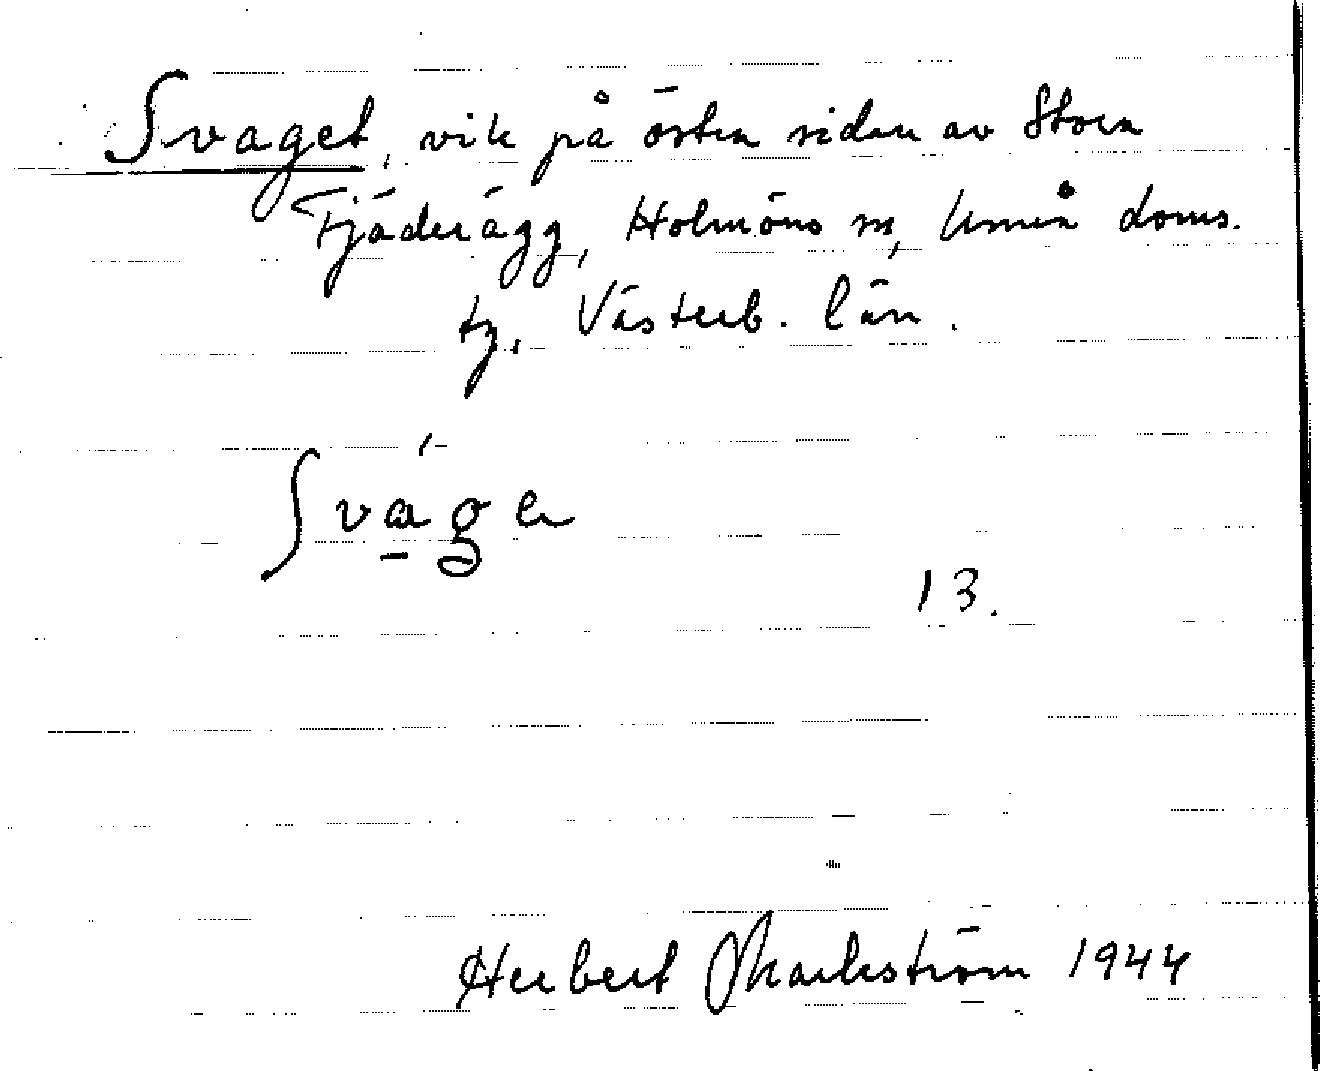 Svaget, vik på östra sidan av Stora
Fjäderägg, Holmöns sn, Umeå doms.
tg, Västerb. län.
Svage
13.
Herbert Markström 1944